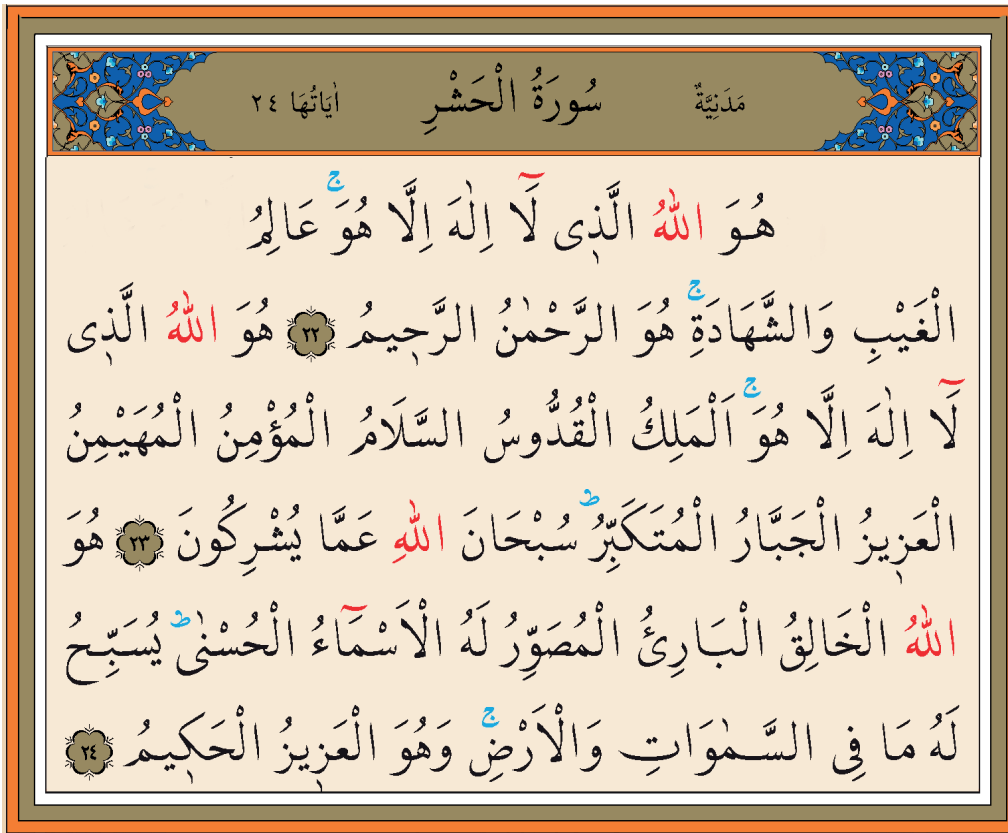 مَدَنِيَّةٌ سُورَةُ الْحَشْرِ اٰيَاتُهَا ٢٤
هُوَ اللّٰهُ الَّذ۪ى لَٓا اِلٰهَ اِلَّا هُوَۚ عَالِمُ
الْغَيْبِ وَالشَّهَادَةِۚ هُوَ الرَّحْمٰنُ الرَّح۪يمُ ﴿٢٢﴾ هُوَ اللّٰهُ الَّذ۪ى
لَٓا اِلٰهَ اِلَّا هُوَۚ اَلْمَلِكُ الْقُدُّوسُ السَّلَامُ الْمُؤْمِنُ الْمُهَيْمِنُ
الْعَز۪يزُ الْجَبَّارُ الْمُتَكَبِّرُۜ سُبْحَانَ اللّٰهِ عَمَّا يُشْرِكُونَ ﴿٢٣﴾ هُوَ
اللّٰهُ الْخَالِقُ الْبَارِئُ الْمُصَوِّرُ لَهُ الْاَسْمَٓاءُ الْحُسْنٰىۜ يُسَبِّحُ
لَهُ مَا فِى السَّمٰوَاتِ وَالْاَرْضِۚ وَهُوَ الْعَز۪يزُ الْحَك۪يمُ ﴿٢٤﴾